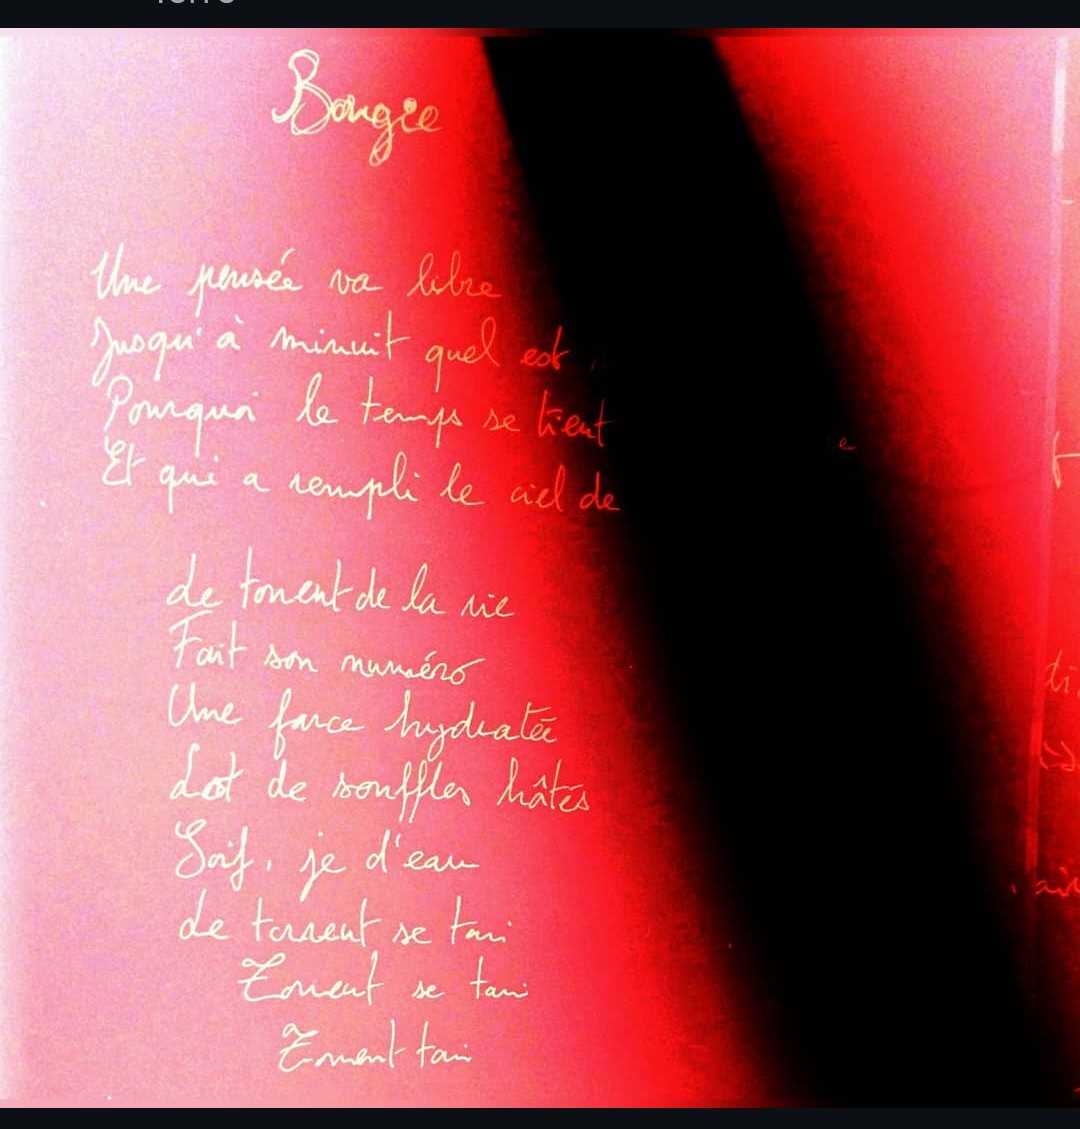 Bougie
Une pensée va libre
Jusqu'à minuit quel est
Pourquoi le temps se tient
Et qui a rempli le ciel de
Le torrent de la vie
Fait son numéro
Une farce hydratée
Lot de souffles hâtés
Soif, je d'eau
Le torrent se tari
Torrent se tari
Torrent tari